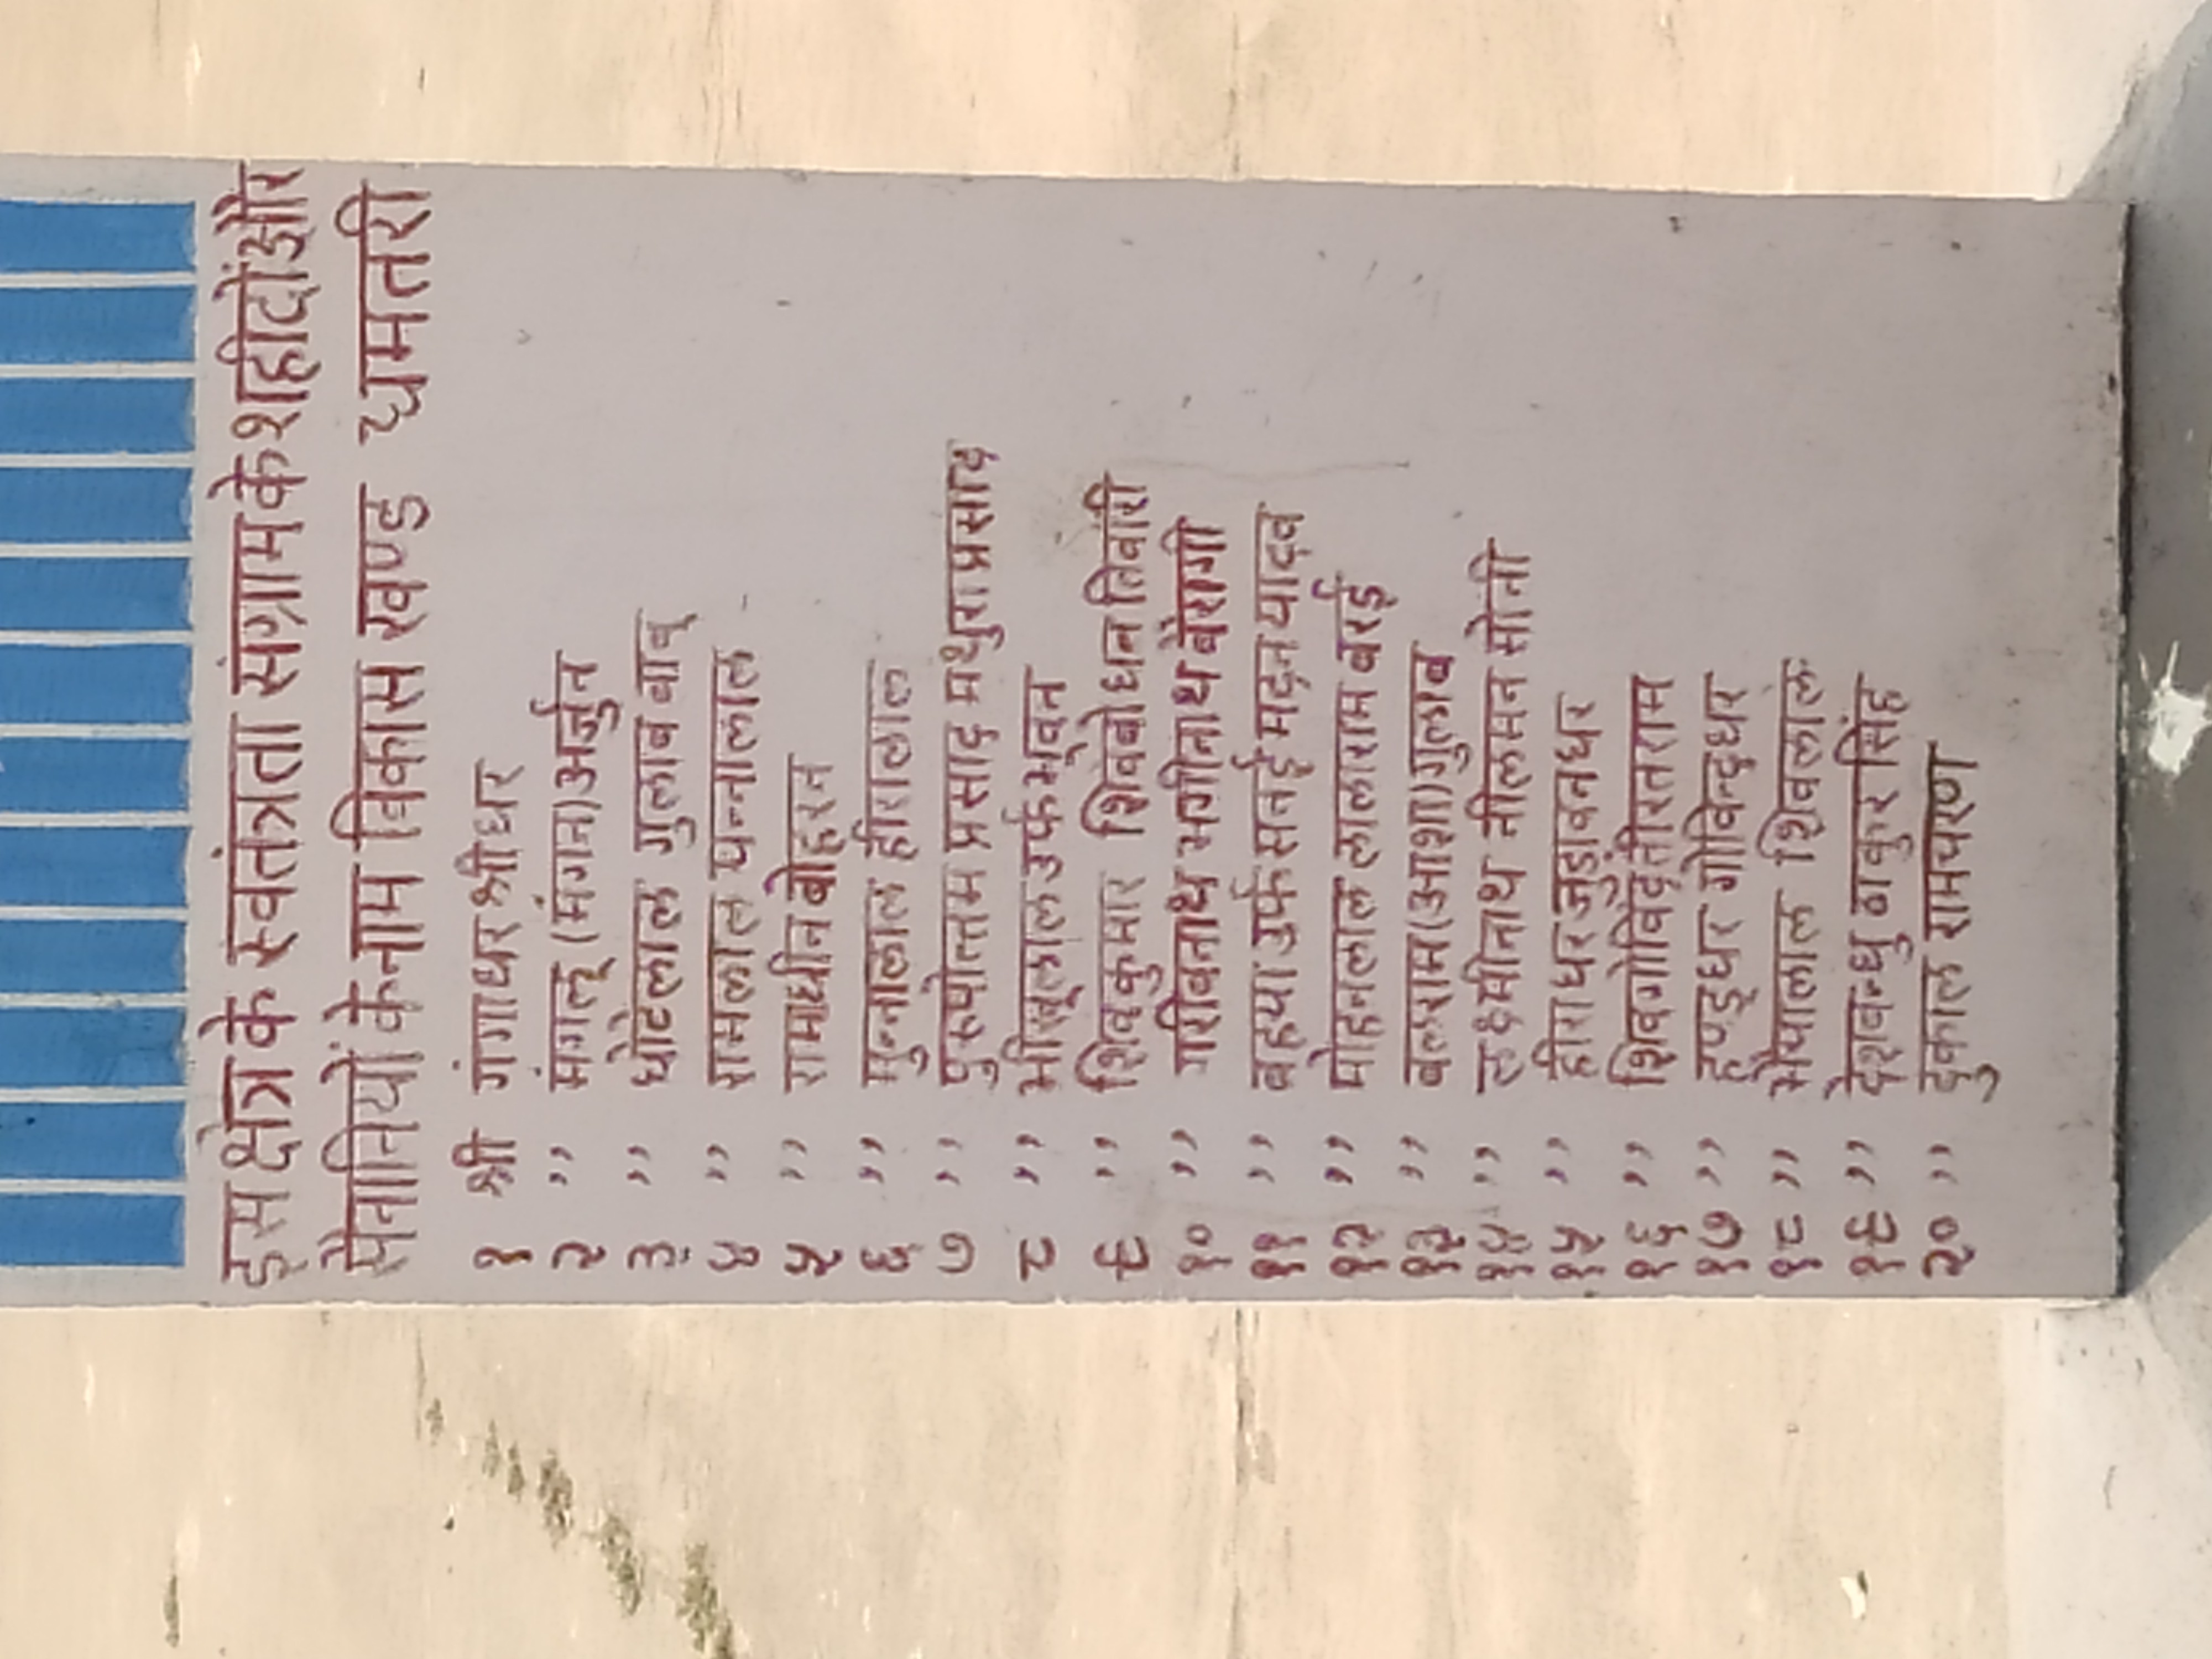 इस क्षेत्र के स्वतंत्रता संग्राम के शहीदों और
सेनानियों के नाम विकास खण्ड धमतरी
१ श्री गंगाधर श्रीधर
२ ,, मंगलू (मंगन) अर्जुन
३ ,, घोटलाल गुलाब बाबू
४ ,, रामलाल पन्नालाल
५ ,, रामाधीन बोहरन
६ ,, मुन्नालाल हीरालाल
७ ,, पुरुषोत्तम प्रसाद मथुरा प्रसाद
८ ,, भीखूलाल उर्फ भुवन
९ ,, शिव कुमार शिवबोधन तिवारी
१० ,, गरीबनाथ भगीनाथ बैरागी
११ ,, बहया उर्फ सनई मदन यादव
१२ ,, मोहनलाल लालाराम बरई
१३ ,, बलराम (आशा) गुलाब
१४ ,, लक्ष्मीनाथ नीलमन सोनी
१५ ,, हीराधर जुड़ावनधर
१६ ,, शिवगोविंद तीरतराम
१७ ,, हुण्डधर गोविन्द धर
१८ ,, भैयालाल शिवलाल
१९ ,, देशबन्धु ठाकुर सिंह
२० ,, दुकाल रामचरण